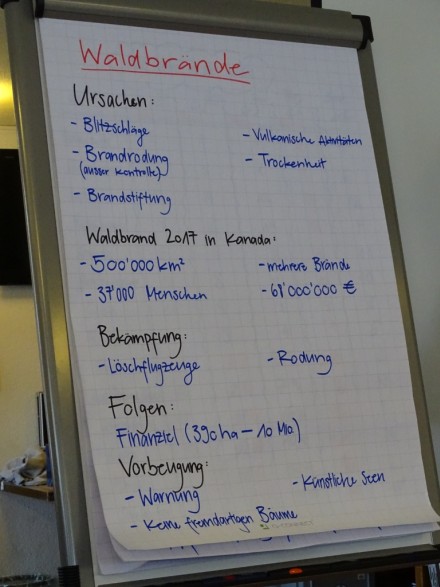 Waldbrände
Ursachen:
- Blitzschläge
- Vulkanische Aktivitäten
- Brandrodung
(ausser Kontrolle)
- Trockenheit
- Brandstiftung
Waldbrand 2017 in Kanada:
- 500'000 km²
- mehrere Brände
- 37'000 Menschen
- 68'000'000 €
Bekämpfung:
- Löschflugzeuge
- Rodung
Folgen:
Finanziel (390 ha – 10 Mio.)
Vorbeugung:
- Warnung
- Künstliche Seen
- Keine fremdartigen Bäume